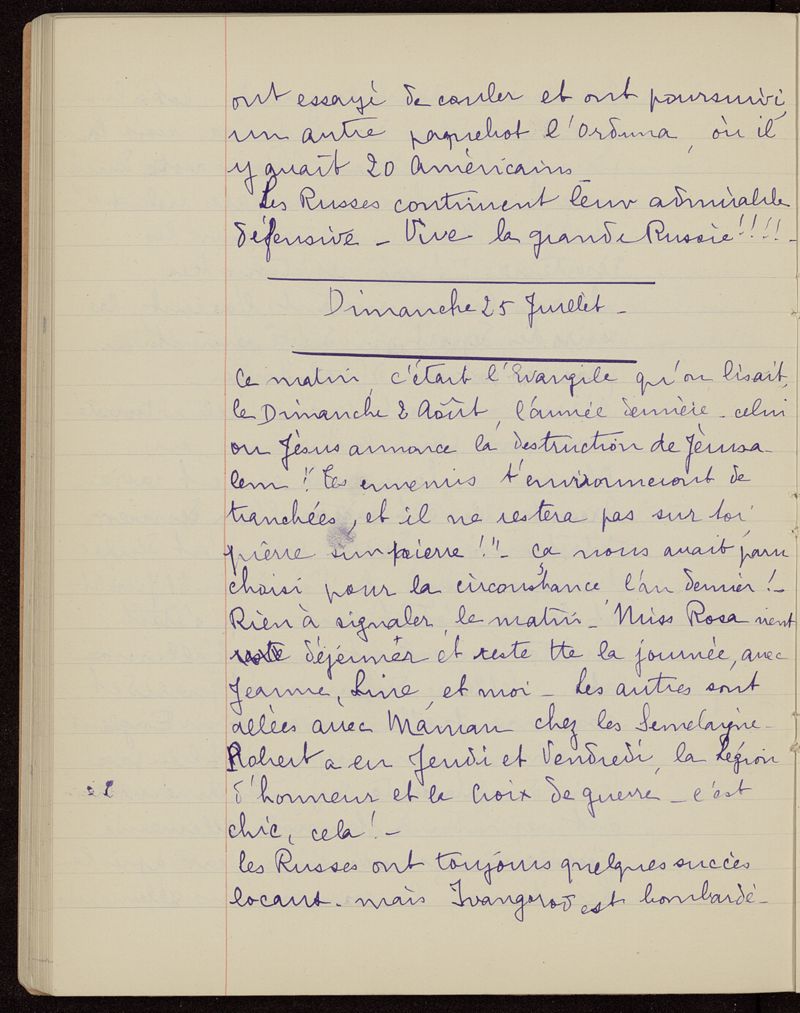 ont essayé de couler et ont poursuivi,
un autre paquebot l'Orduna, où il
y avait 20 Américains_
Les Russes continuent leur admirable
défensive _ Vive la grande Russie !!!! _
Dimanche 25 Juillet _
Ce matin, c'était l'Evangile qu'on lisait,
le Dimanche 2 Août, l'année dernière _ celui
ou Jésus annonce la destruction de Jérusa_
lem !" Tes ennemis t'environneront de
tranchées, et il ne restera pas sur toi,
pierre sur pierre !" _ ça nous avait paru
choisi pour la circonstance, l'an dernier ! _
Rien à signaler, le matin _ Miss Rosa vient
déjeuner et reste tte la journée, avec
Jeanne, Line, et moi _ Les autres sont
allées avec Maman chez les Semelaigne _
Robert a eu Jeudi et Vendredi, la Légion
d'honneur et la Croix de guerre _ c'est
chic, cela ! _
Les Russes ont toujours quelques succès
locaux. mais Ivangorod est bombardé _